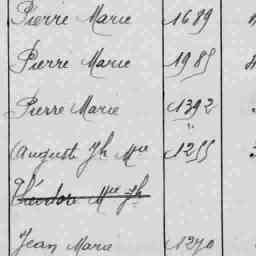 Pierre Marie 1689
Pierre Marie 1985
Pierre Marie 1392
August Jh Mie 1255
Théodore Mie Jh
Jean Marie 1270